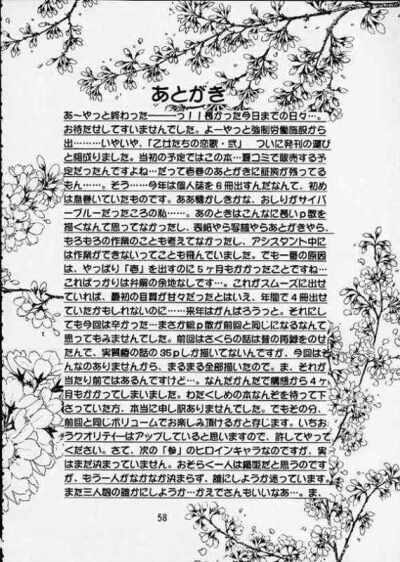 あとがき
あ～やっと終わった―――っ！！長かった今日までの日々…。
お待たせしてすいませんでした。よーやっと強制労働施設から
出………いやいや、「乙女たちの恋歌・弐」 ついに発刊の運び
と相成りました。当初の予定ではこの本…夏コミで販売する予
定だったんですよね…だって壱巻のあとがきに証拠が残ってる
もん……。そう……今年は個人誌を６冊出すんだなんて、初め
は息巻いていたものです。ああ懐かしきかな、おしりがサイバ
ーブルーだったころの私……。あのときはこんなに長いｐ数を
描くなんて思ってなかったし、表紙やら写植やらあとがきやら、
もろもろの作業のことも考えてなかったし、アシスタント中に
は作業ができないってことも飛んでいました。でも一番の原因
は、やっぱり「壱」を出すのに５ヶ月もかかったことですね…
こればっかりは弁解の余地なしです…。これがスムーズに出せ
ていれば、最初の目算が甘々だったとはいえ、年間で４冊出せ
ていたかもしれないのに……来年はがんばろうっと。それにし
ても今回は辛かった…まさか総ｐ数が前回と同じになるなんて
思ってもみませんでした。前回はさくらの話は昔の再録をのせ
たんで、実質綾の話の35ｐしか描いてないんですが、今回はそ
んなのありませんから、まるまる全部描いたので。ま、それが
当たり前ではあるんですけど…。なんだかんだで構想から４ヶ
月もかかってしまいました。わたくしめの本なんぞを待って下
さっていた方、本当に申し訳ありませんでした。でもその分、
前回と同じボリュームでお楽しみ頂けるかと存じます。いちお
うクオリティーはアップしていると思いますので、許してやって
ください。さて、次の「参」のヒロインキャラなのですが、実
はまだ決まっていません。おそらく一人は
だと思うのです
が、もう一人がなかなか決まらず、誰にしようか迷っています。
また三人娘の誰かにしようか…かえでさんもいいなあ…。ま、
58